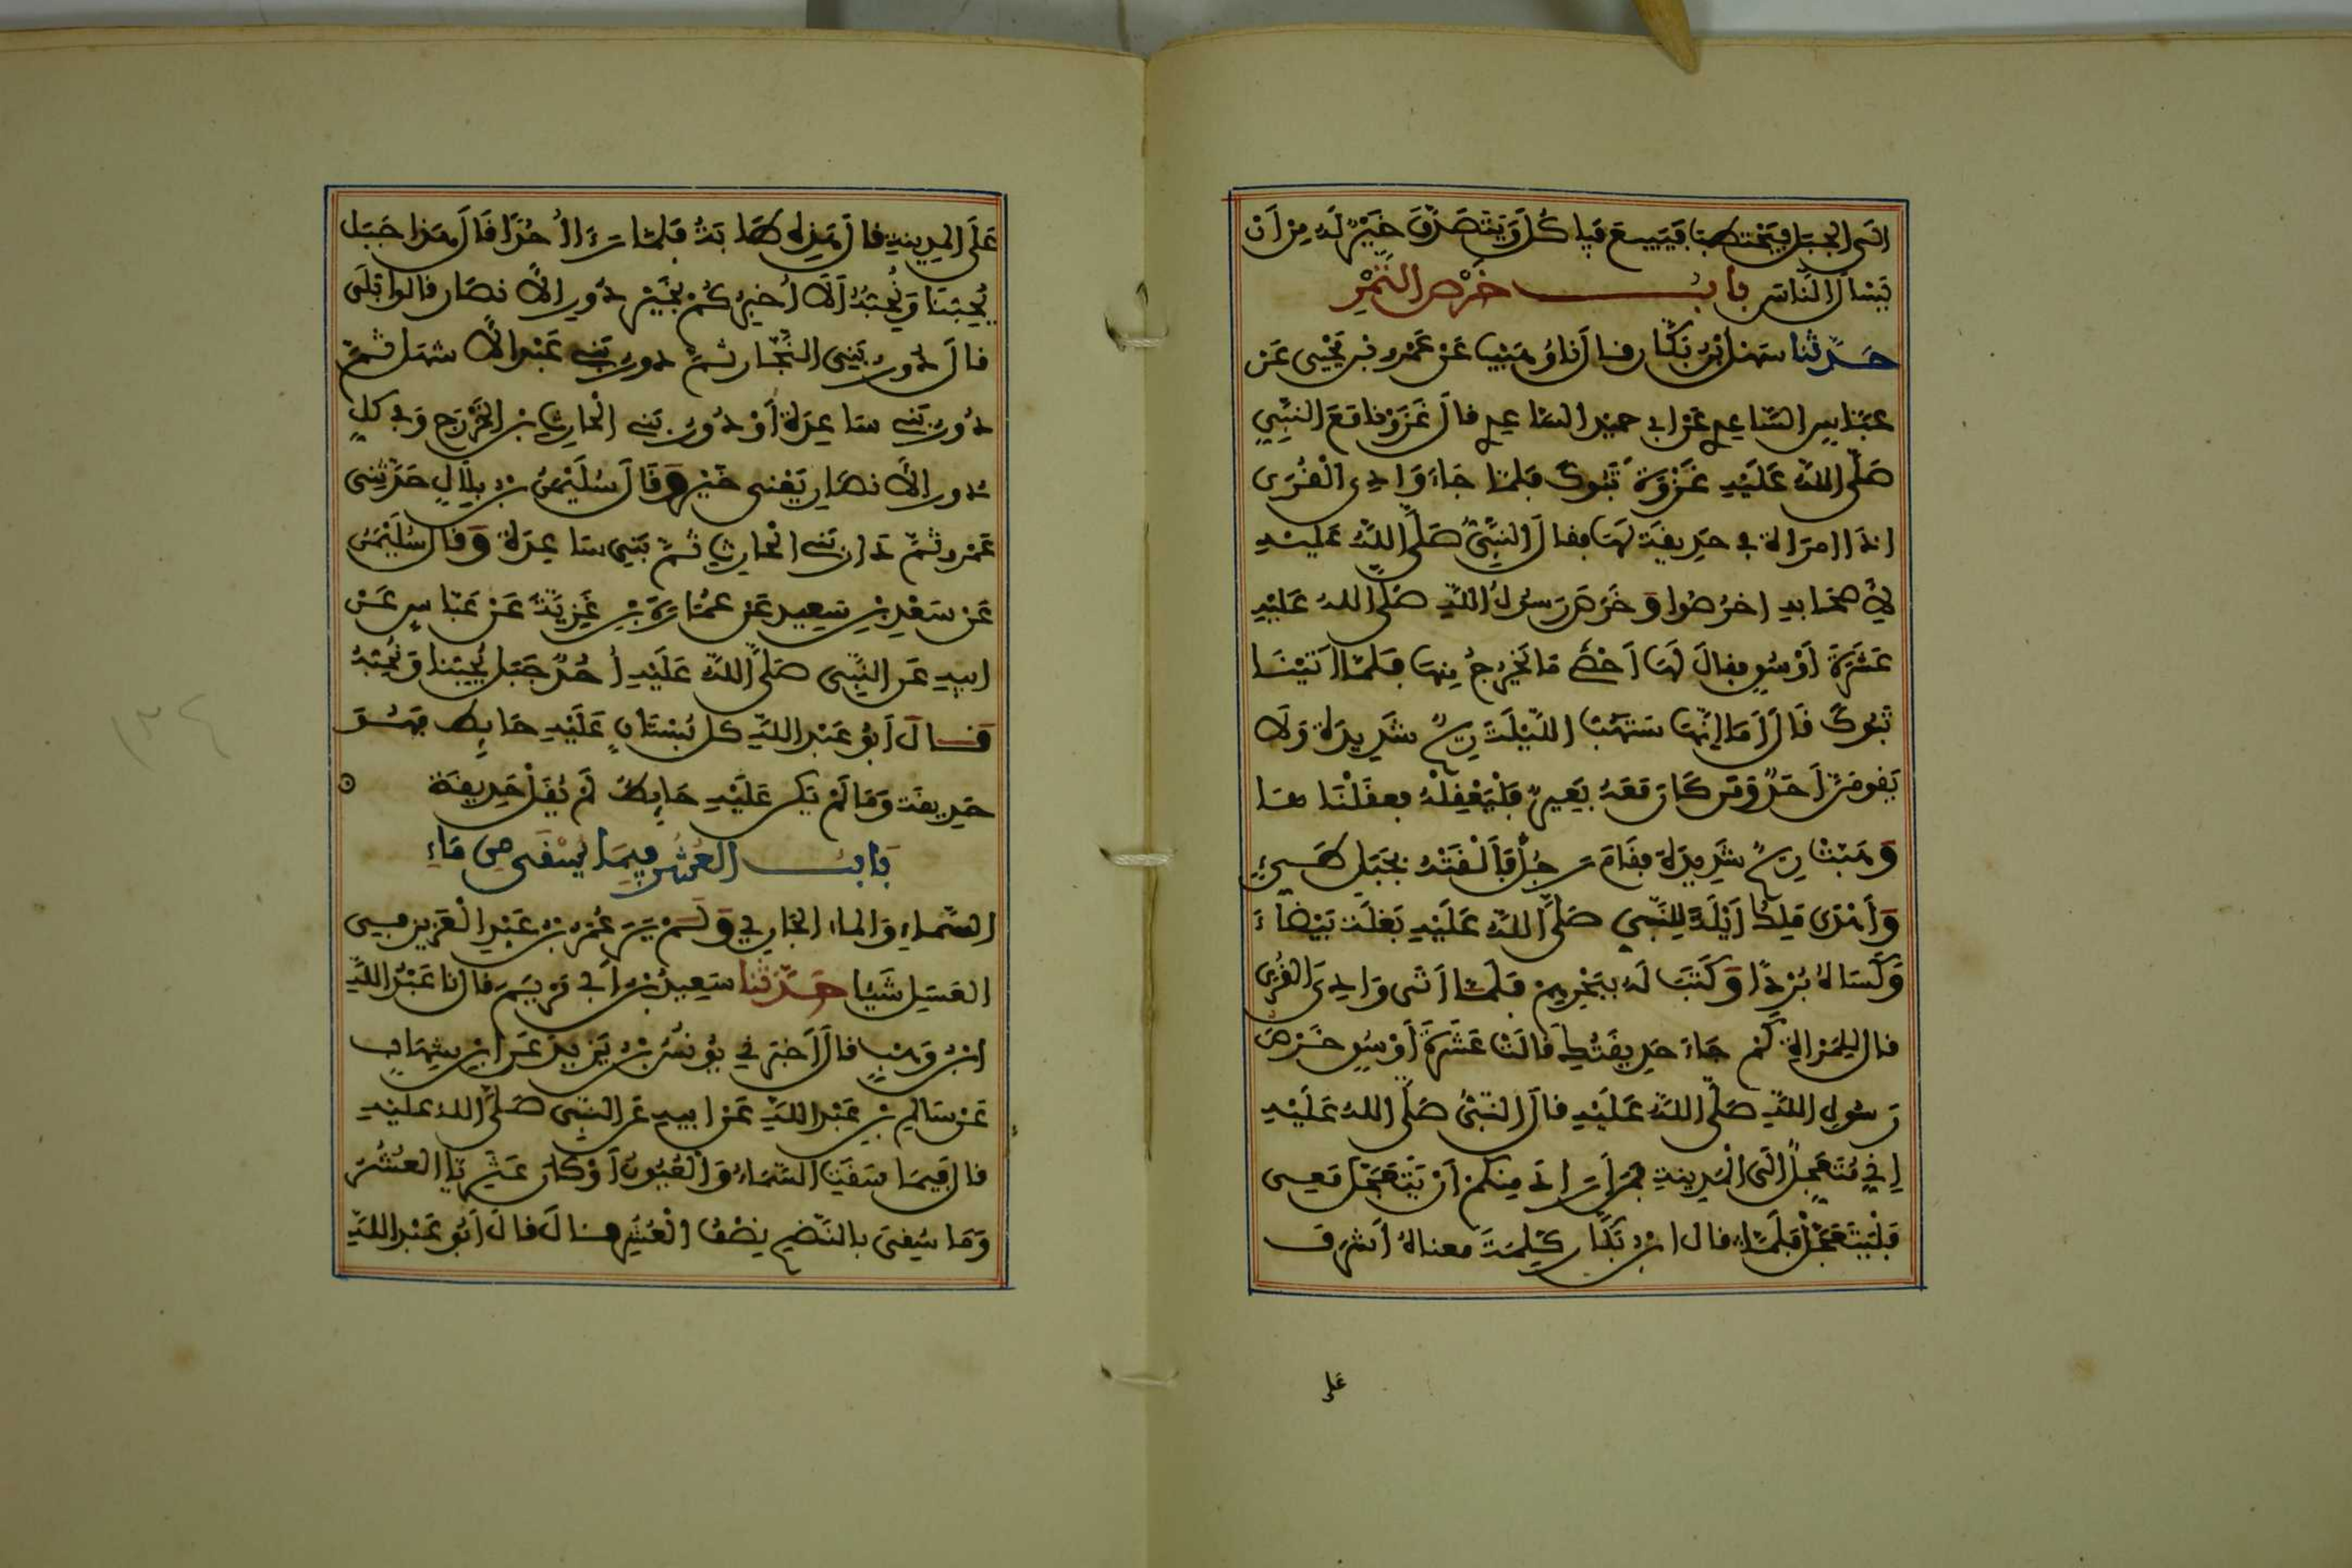 الى الجبل فيحتطب فيبيع فياكل ويتصدق خير له من ان
يسال الناس باب خرص التمر
حدثنا سهل بن بكار قال نا وهيب عن عمرو بن يحيى عن
عباس الساعدي عن ابي حميد الساعدي قال غزونا مع النبي
صلى الله عليه غزوة تبوك فلما جاء وادي القرى
اذا امراة في حديقة لها فقال النبي صلى الله عليه
لاصحابه اخرصوا وخرص رسول الله صلى الله عليه
عشرة اوسق فقال لها احصي ما يخرج منها فلما اتينا
تبوك قال اما انها ستهب الليلة ريح شديدة ولا
يقومن احد ومن كان معه بعير فليعقله فعقلناها
وهبت ريح شديدة فقام رجل فالقته بجبل طيء
واهدى ملك ايلة للنبي صلى الله عليه بغلة بيضاء
وكساه بردا وكتب له ببحرهم فلما اتى وادي القرى
قال للمراة كم جاء حديقتك قالت عشرة اوسق خرص
رسول الله صلى الله عليه قال النبي صلى الله عليه
اني متعجل الى المدينة فمن اراد منكم ان يتعجل معي
فليتعجل فلما قال ابن بكار كلمة معناه اشرف
على
على المدينة قال هذه طابة فلما راى احدا قال هذا جبل
يحبنا ونحبه الا اخبركم بخير دور الانصار قالوا بلى
قال دور بني النجار ثم دور بني عبد الاشهل ثم
دور بني ساعدة او دور بني الحارث بن الخزرج وفي كل
دور الانصار يعني خير وقال سليمن بن بلال حدثني
عمرو ثم دار بني الحارث ثم بني ساعدة وقال سليمن
عن سعد بن سعيد عن عمارة بن غزية عن عباس عن
ابيه عن النبي صلى الله عليه احد جبل يحبنا ونحبه
قال ابو عبد الله كل بستان عليه حايط فهو
حديقة وما لم يكن عليه حايط لم يقل حديقة
باب العشر فيما يسقى من ماء
السماء والماء الجاري ولم ير عمر بن عبد العزيز في
العسل شيئا حدثنا سعيد بن ابي مريم قال نا عبد الله
ابن وهب قال اخبرني يونس بن يزيد عن ابن شهاب
عن سالم بن عبد الله عن ابيه عن النبي صلى الله عليه
قال فيما سقت السماء والعيون او كان عثريا العشر
وما سقي بالنضح نصف العشر قال قال ابو عبد الله
١٣٤